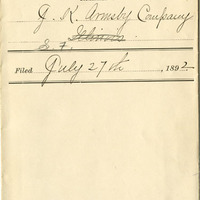 J. K. Armsby Company
Illinois
S. F.
Filed July 27th, 1892